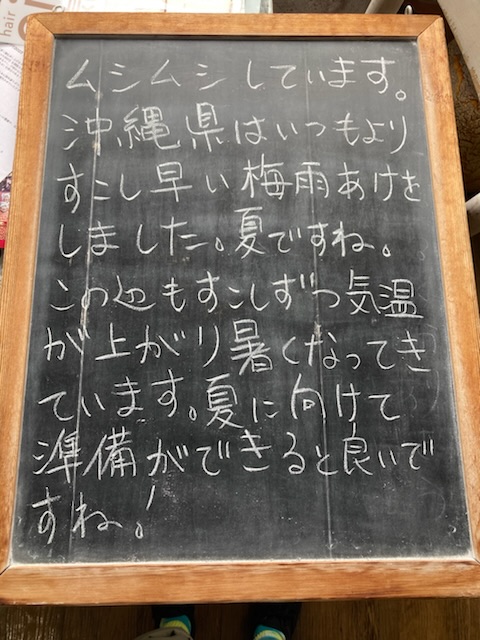 hair
ムシムシしています。
沖縄県はいつもより
すこし早い梅雨あけを
しました。夏ですね。
この辺もすこしずつ気温
が上がり暑くなってき
ています。夏に向けて
準備ができると良いで
すね!